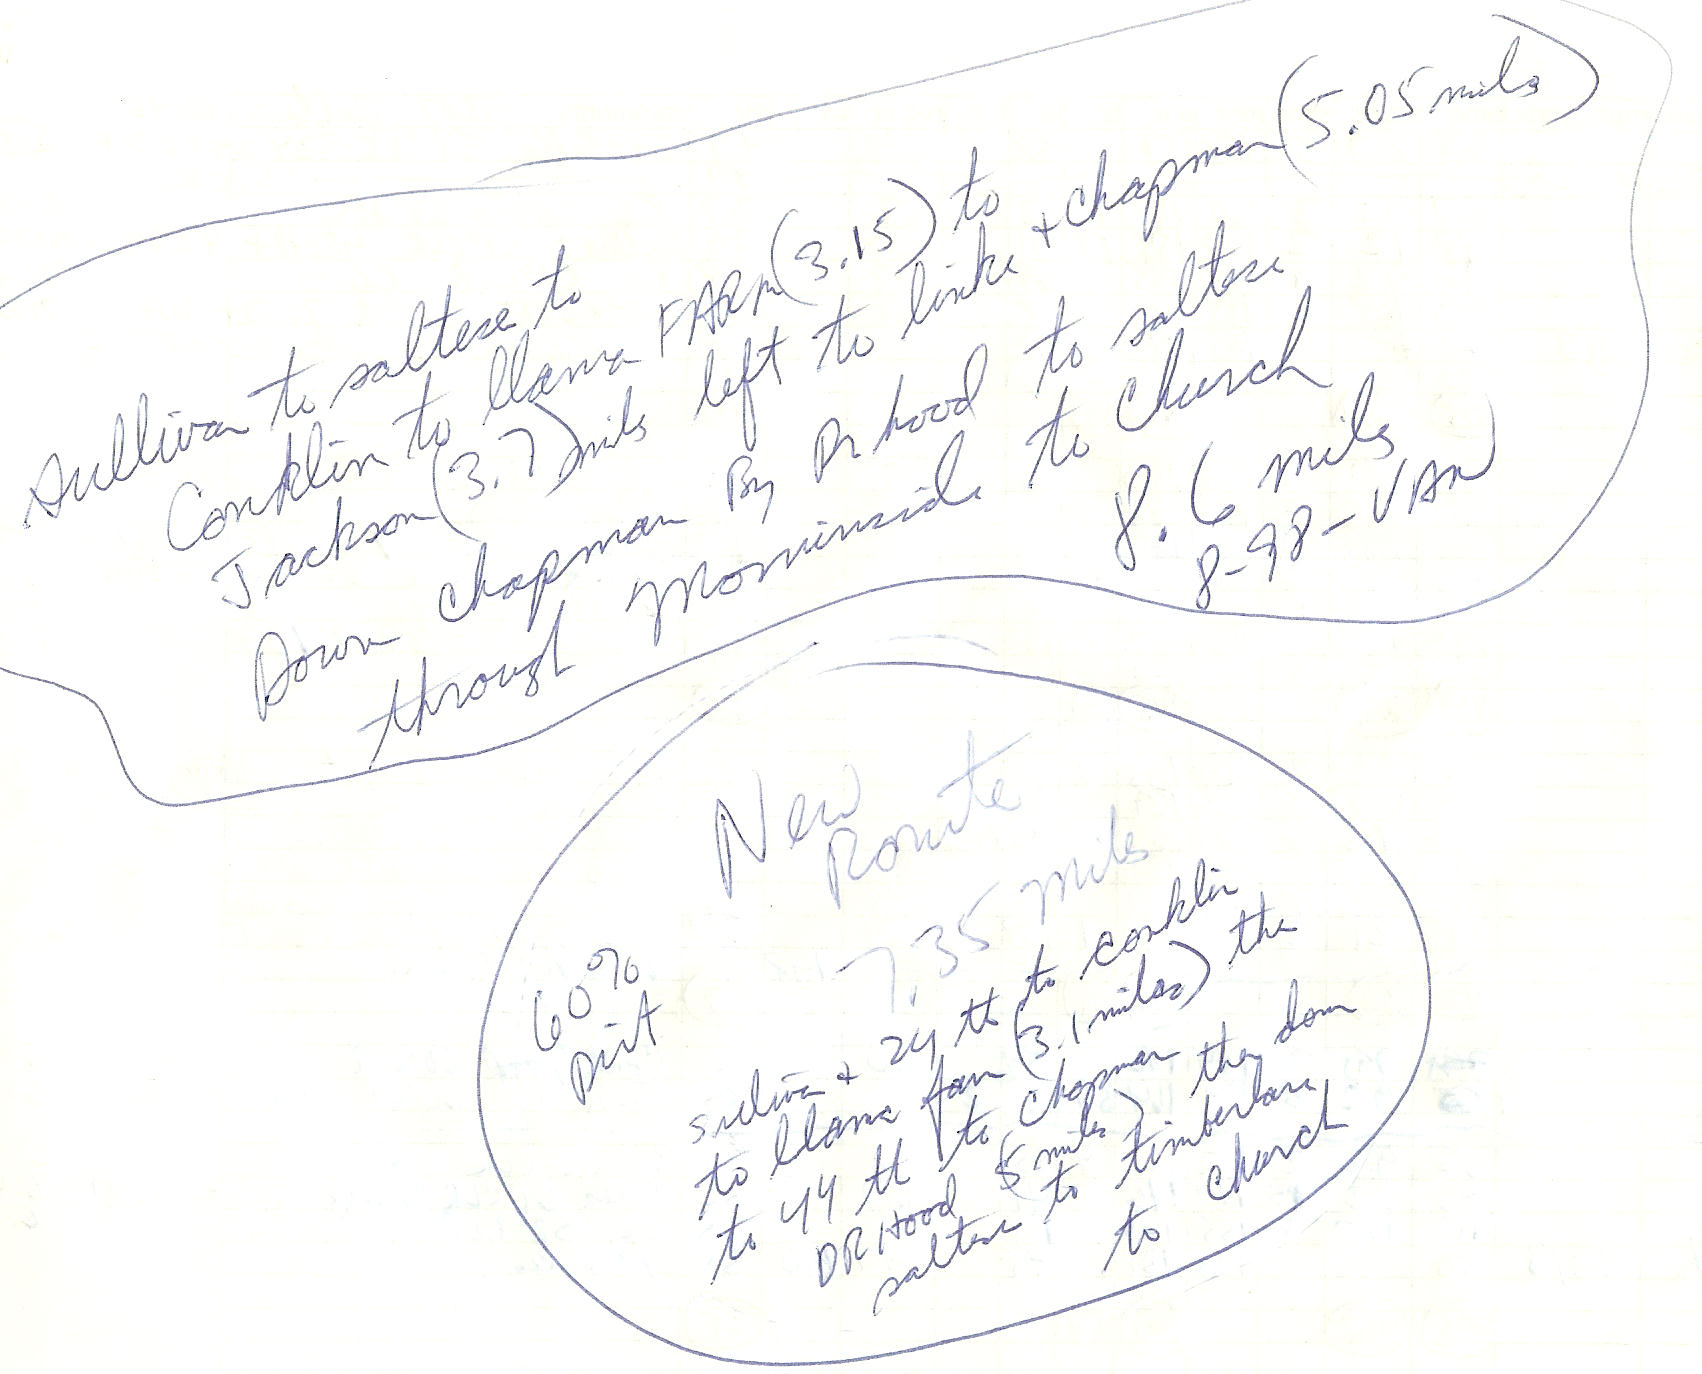 Sullivan to saltese to
Conklin to llama FARM (3.15) to
Jackson (3.7) mils left to linke + chapman (5.05 mils)
Down chapman By Dr hood to saltese
through Morninside to church
8.6 mils
8-98-VAN
New
Route
7.35 mils
60%
Dirt
sulivan + 24 th to conklin
to llama farm (3.1 miles) the
to 44 th to Chapman they down
DR Hood (5 miles)
saltese to timberlane
to church